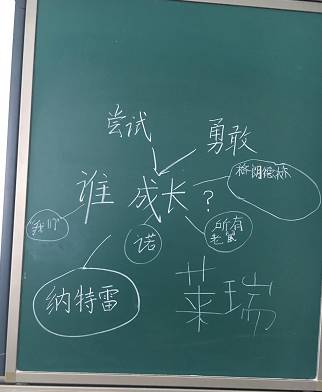 尝试
勇敢
谁 成长 ?
我们
诺
所有
老鼠
纳特雷
莱瑞